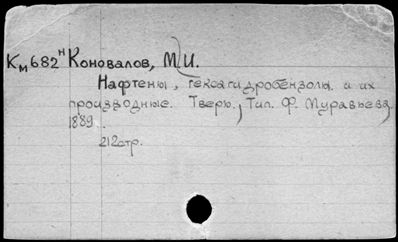 Км682н Коновалов, М. И.
Нафтены, гексагидробензолы и их
производные. Тверь, Тип. Ф. Муравьева,
1889.
212стр.